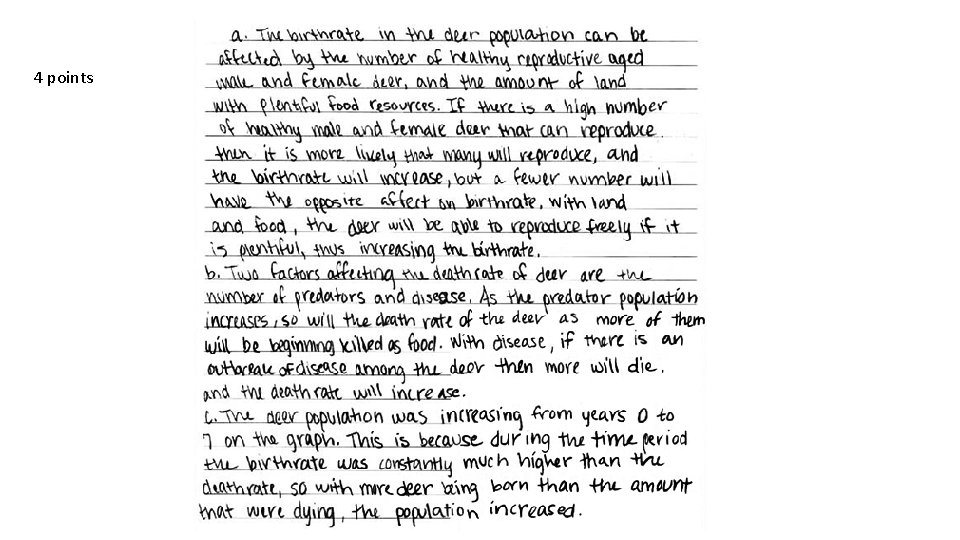 4 points
a. The birthrate in the deer population can be
affected by the number of healthy reproductive aged
male and female deer, and the amount of land
with plentiful food resources. If there is a high number
of healthy male and female deer that can reproduce
then it is more lively that many will reproduce, and
the birthrate will increase, but a fewer number will
have the opposite affect on birthrate. With land
and food, the deer will be able to reproduce freely if it
is plentiful, thus increasing the birthrate.
b. Two factors affecting the deathrate of deer are the
number of predators and disease. As the predator population
increases, so will the death rate of the deer as more of them
will be beginning killed as food. With disease, if there is an
outbreak of disease among the deer then more will die.
and the death rate will increase.
c. The deer population was increasing from years 0 to
7 on the graph. This is because during the time period
the birthrate was constantly much higher than the
deathrate, so with more deer being born than the amount
that were dying, the population increased.